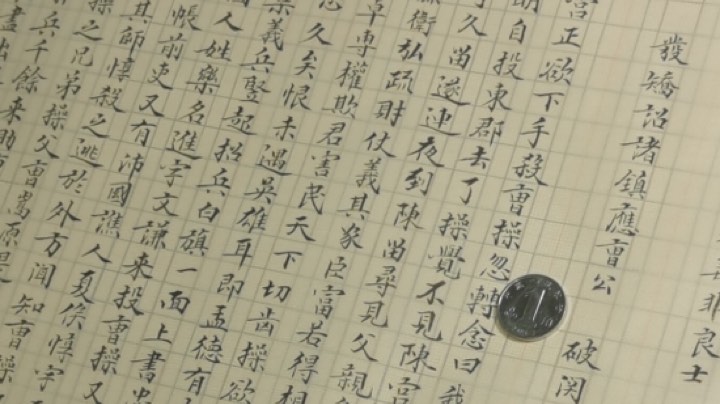 非良士
發矯詔諸鎮應曹公 破関
宮正欲下手殺曹操忽轉念曰我
明自投東郡去了操覺不見陳宮
久畱遂連夜到陳畱尋見父親
衛弘疏財仗義其家臣富若得相
卓專權欺君害民天下切齒操欲
久矣恨未遇英雄耳即孟德有
集義兵豎起招兵白旗一面上書忠
國人姓樂名進字文謙來投曹操又
帳前吏又有沛國譙人夏侯惇字
其師惇殺之逃於外方聞知曹操
操之兄弟操父曹嵩原是
兵千餘來助
出
1